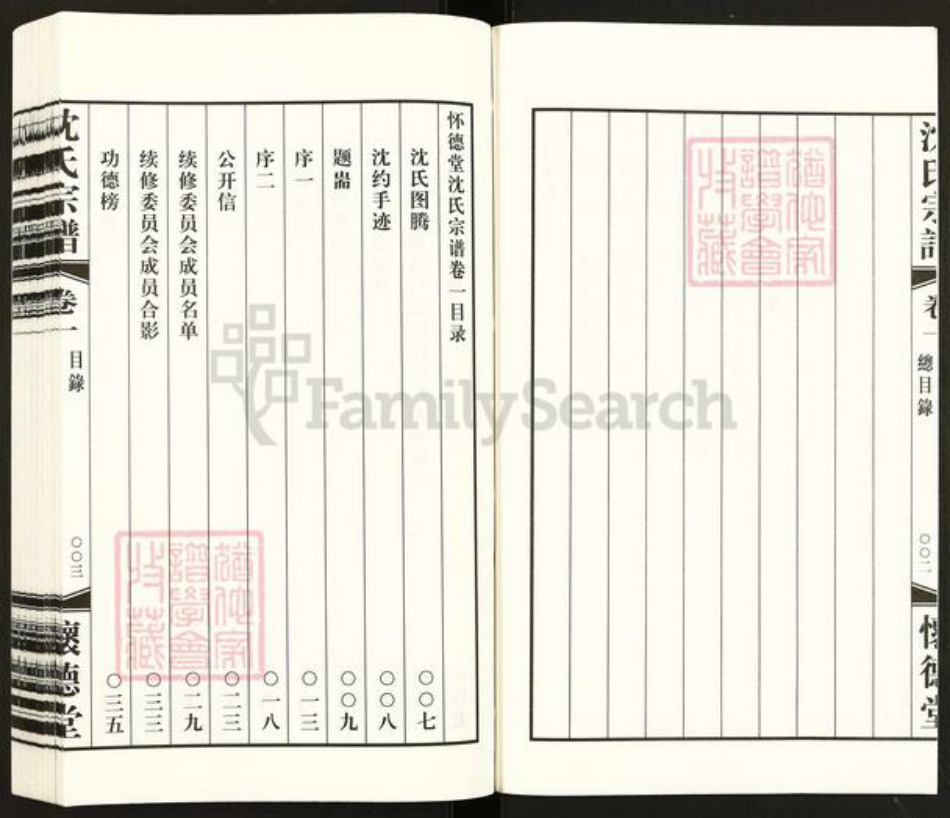 沈氏宗譜
卷一
總目錄
〇〇二
懷德堂
怀德堂沈氏宗谱卷一目录
沈氏图腾
〇〇七
沈约手迹
〇〇八
题耑
〇〇九
序一
〇一三
序二
〇一八
公开信
〇二三
续修委员会成员名单
〇二九
续修委员会成员合影
〇三三
功德榜
〇三五
沈氏宗譜
卷一
目錄
〇〇三
懷德堂
譜學會
收藏
譜學會
收藏
FamilySearch